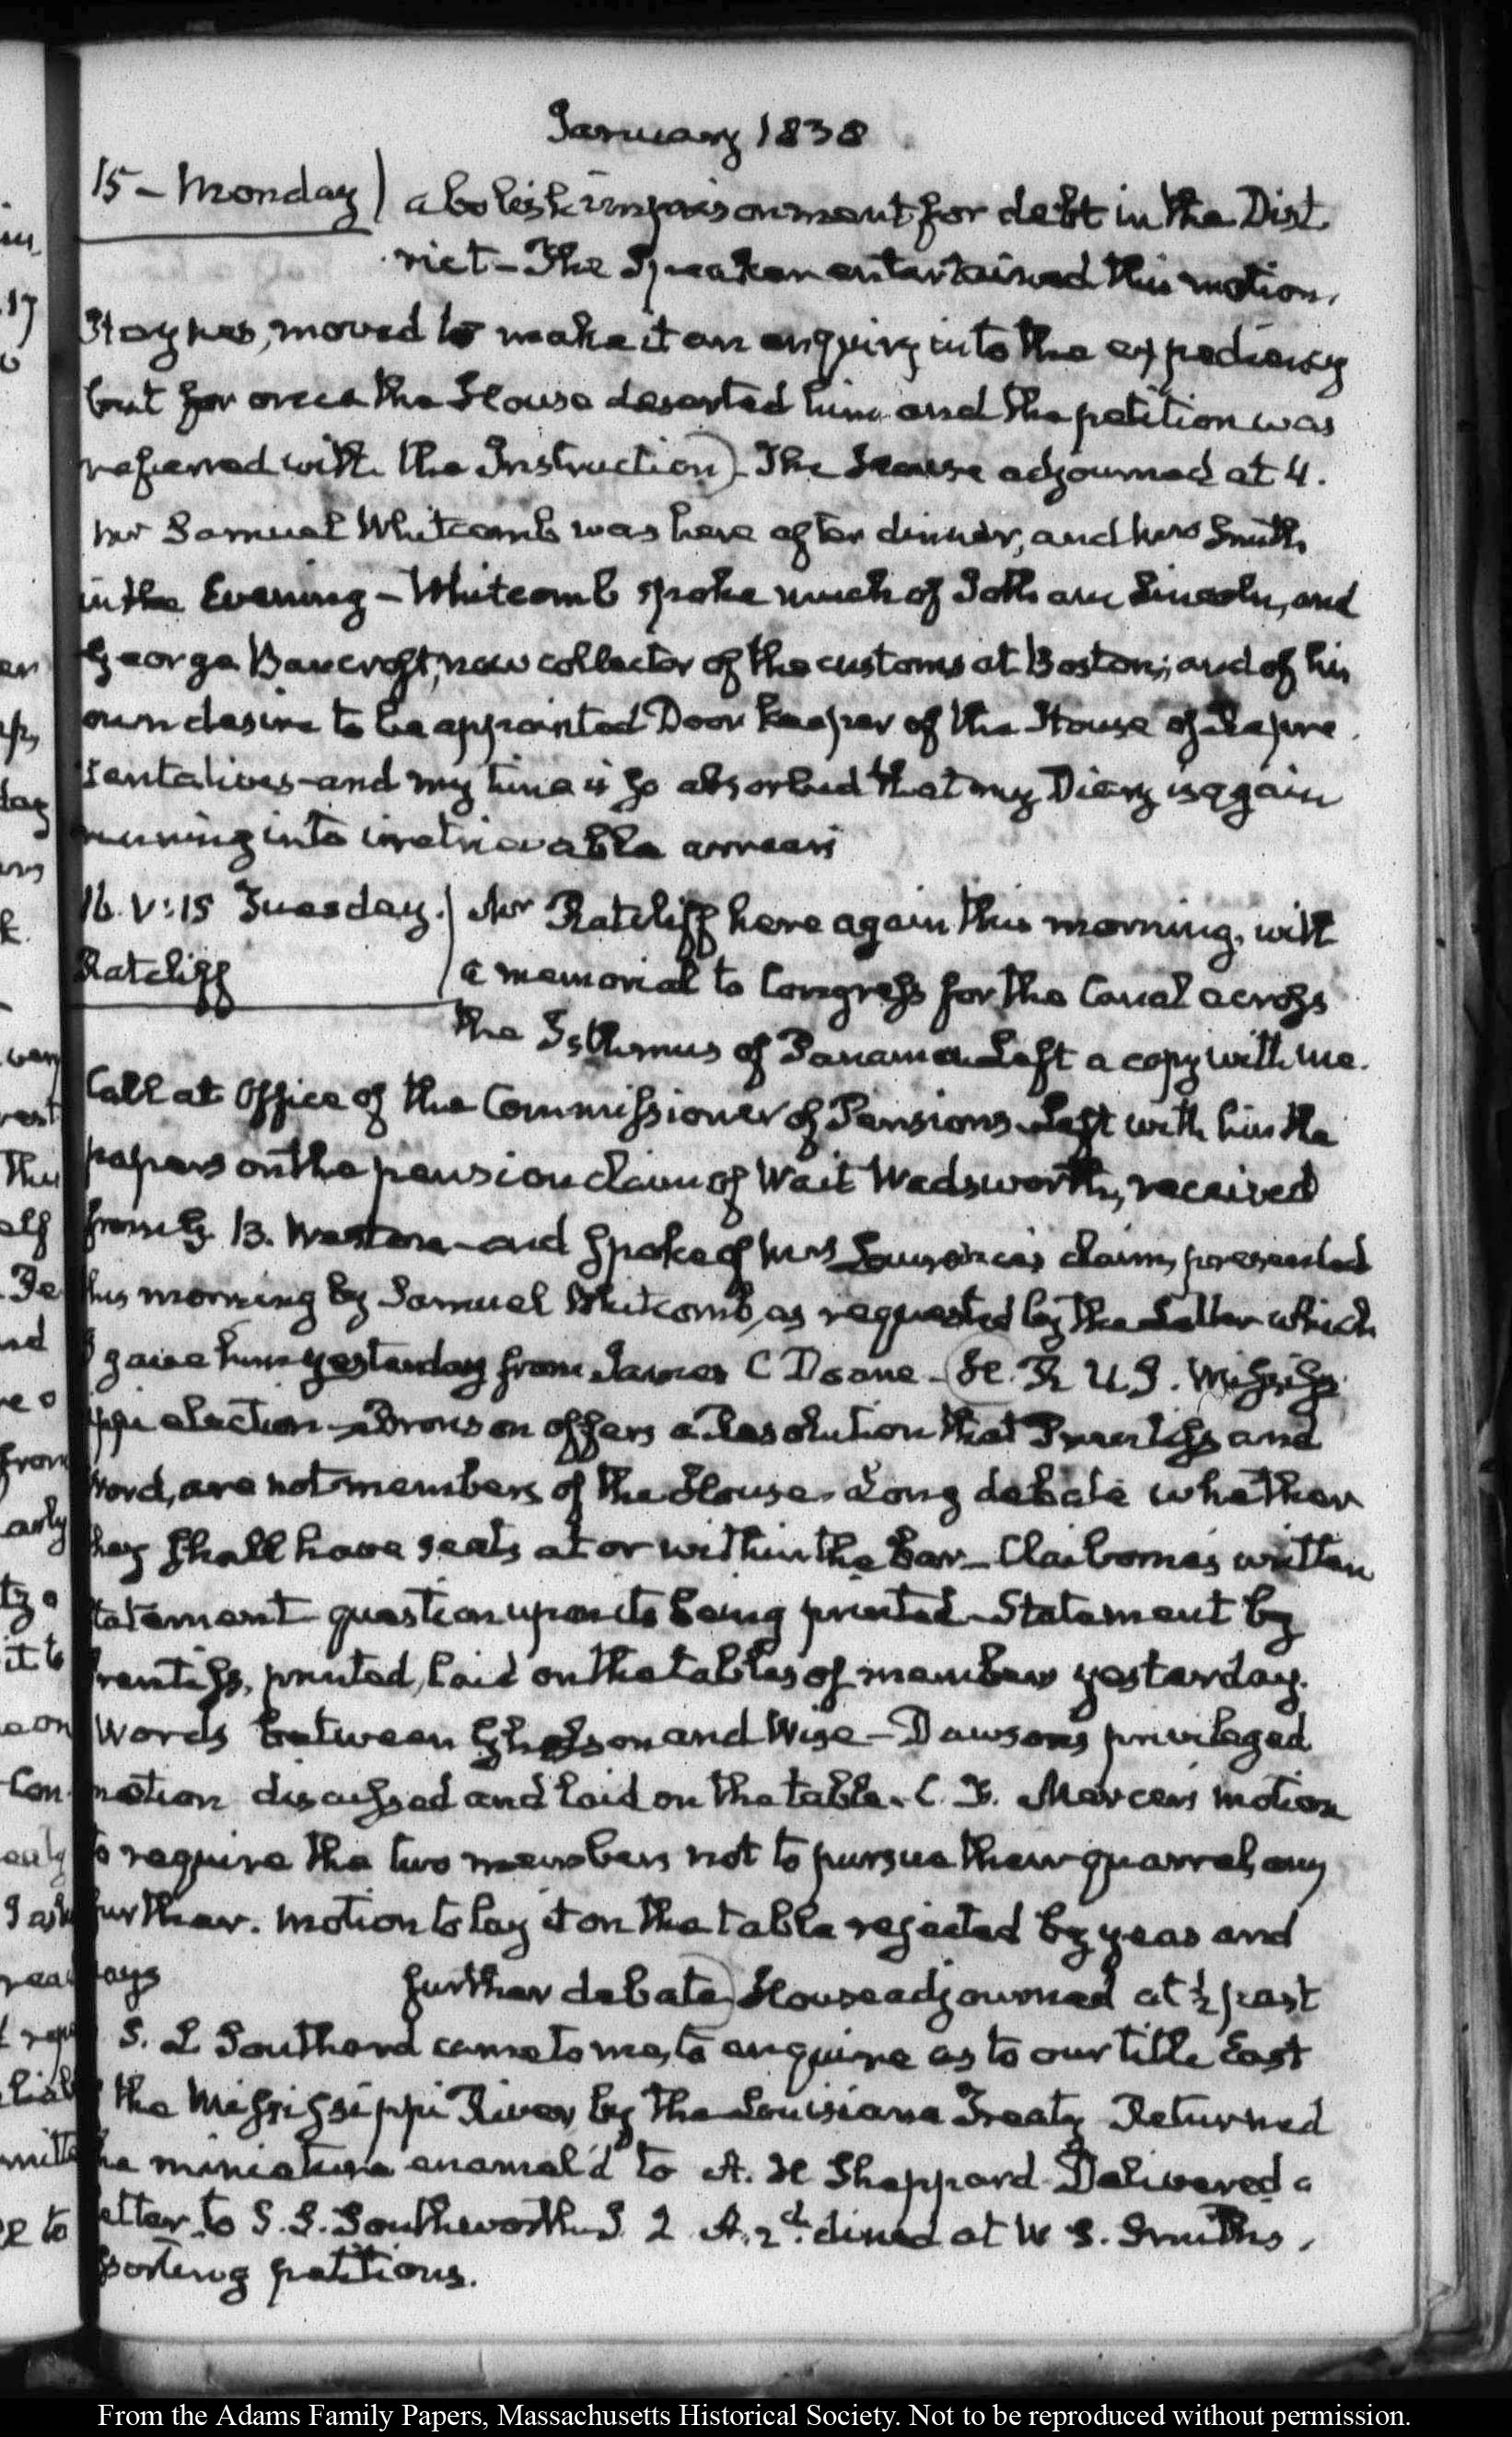 January 1838
15 - Monday) abolish imprisonment for debt in the Dist
rict - The Speaker entertained this motion.
Haynes, moved to make it an enquiry into the expediency
but for once the House deserted him and the petition was
referred with the Instruction) - The House adjourned at 4.
Mr Samuel Whitcomb was here after dinner, and Mrs Smith
in the Evening - Whitcomb spoke much of Jotham Lincoln, and
George Bancroft, now collector of the customs at Boston; and of his
own desire to be appointed Door keeper of the House of Repre
sentatives - and my time is so absorbed that my Diary is again
running into irretrievable arrears
16. V:15 Tuesday.) Mr Ratcliff here again this morning, with
Ratcliff a memorial to Congress for the Canal across
the Isthmus of Panama. Left a copy with me.
Call at Office of the Commissioner of Pensions. Left with him the
papers on the pension claim of Wait Wadsworth, received
from G B. Weston - and spoke of Mrs claim, presented
this morning by Samuel Whitcomb, as requested by the Letter which
I gave him yesterday from James C Doane - H. R U.S. Missis
ippi election - Bronson offers a Resolution that Prentiss and
Word, are not members of the House. Long debate whether
they shall have seats at or within the bar - Claiborne's written
statement question upon its being printed - Statement by
Prentiss, printed, laid on the tables of members yesterday.
Words between Gholson and Wise - Dawson's privileged
motion discussed and laid on the table. C. F. Mercer's motion
to require the two members not to pursue their quarrel any
further. Motion to lay it on the table rejected by yeas and
nays further debate) House adjourned at ½ past
S. L Southard came to me, to enquire as to our title East
of the Mississippi River by the Louisiana Treaty Returned
the miniature enamel'd to A. H Sheppard - Delivered a
letter to S. S. Southworth J. 2 A. 2d. dined at W S. Smith's,
sorting petitions.
From the Adams Family Papers, Massachusetts Historical Society. Not to be reproduced without permission.